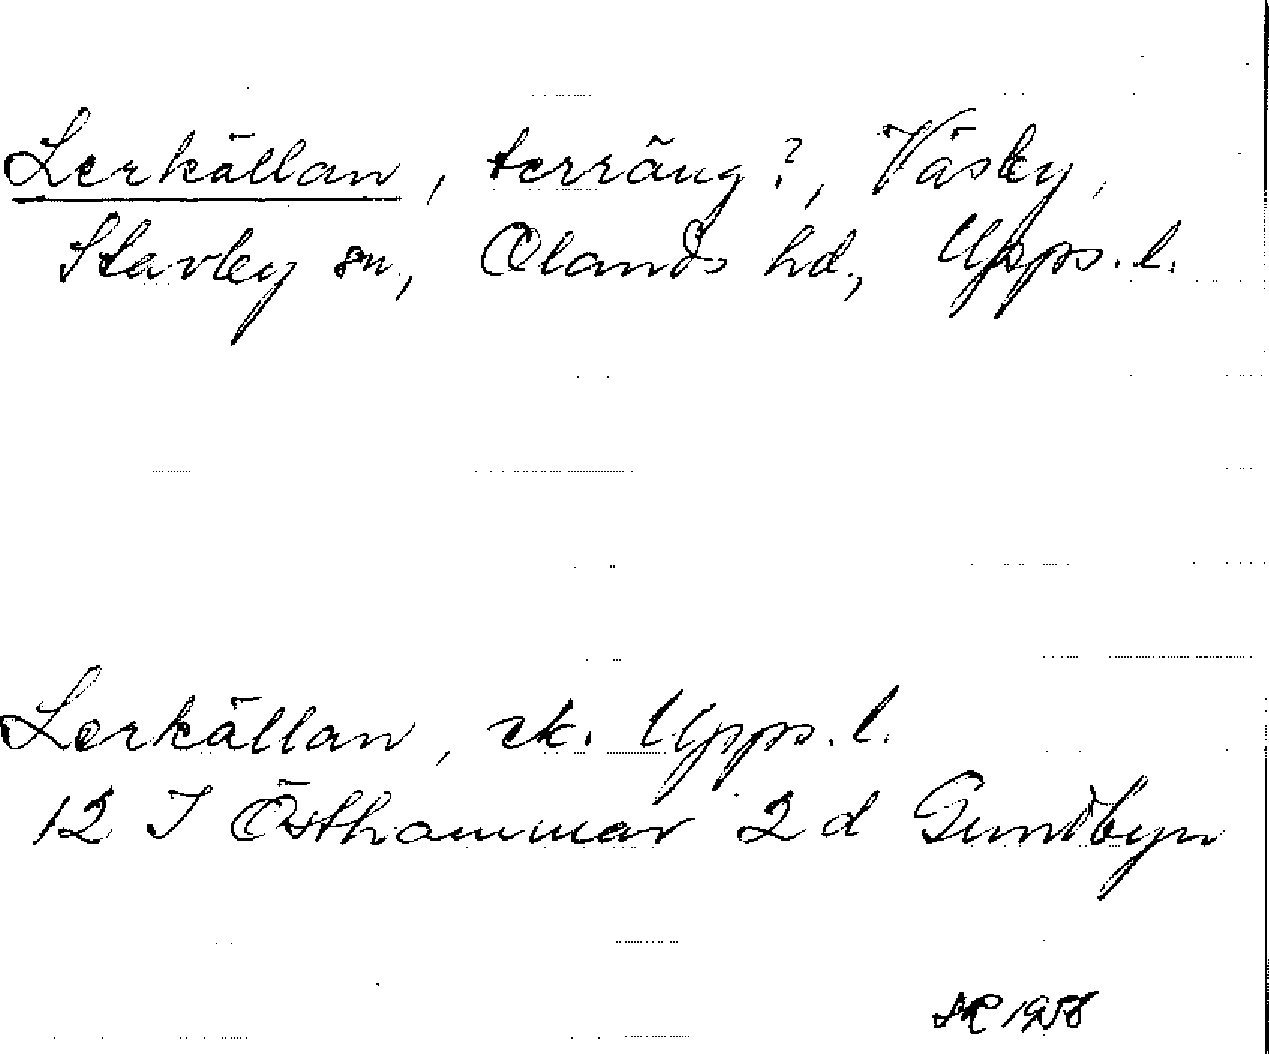 Lerkällan, terräng?, Väsby,
Stavby sn, Olands hd, Upps. l.
Lerkällan, ek. Upps. l.
12 I Östhammar 2 d Gundbyn
1958